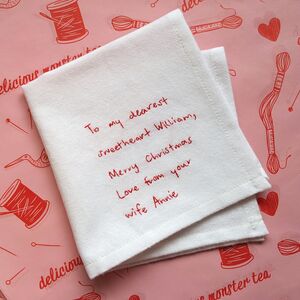 delicious monster tea
To my dearest
sweetheart William,
Merry Christmas
Love from your
wife Annie
delicious
monster tea